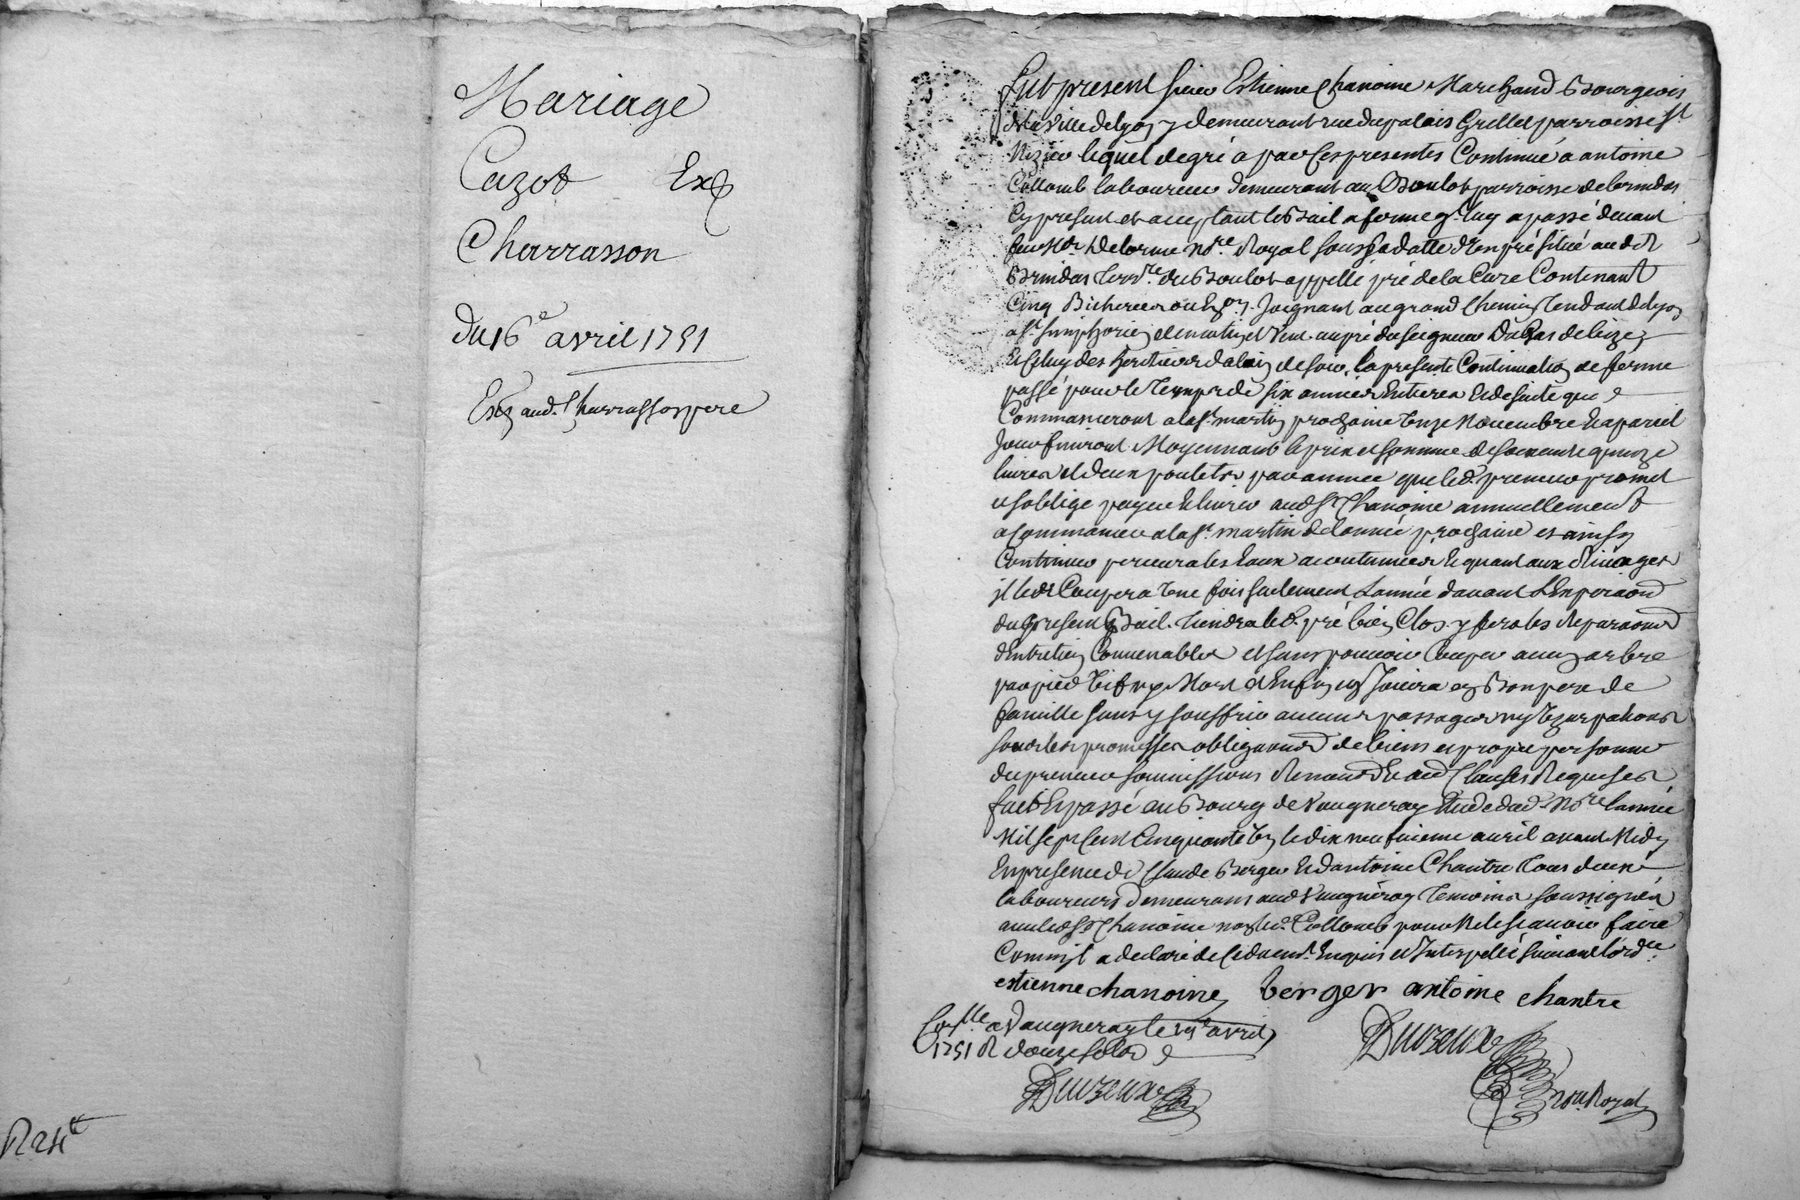 Mariage
Cazot Exp
Charrasson
du 16e avril 1751
Exp aud. Charrasson pere
R 24 s
fut present sieur Estienne Chanoine Marchand Bourgeois
de la ville de lyon y demeurant rue du palais Grillet parroisse st
Nizier lequel de gré a par ces presentes Continué a antoine
Collomb laboureur demeurant au Boulot parroisse de brindas
cy present et acceptant le Bail a ferme ql luy a passé devant
feu Mr Delorme nore Royal sous sa datte d'un pré situé aud
Brindas terre du Boulot appellé pré de la Care Contenant
Cinq Bicherées ou Eon Joignant au grand Chemin tendant de lyon
a st simphorien de matin et vent au pré du seigneur
Et Celuy des heritiers d'alain de soir, la presente Continuation de ferme
passé pour le temps de six années Entieres Et de suite que
Commanceront a la st martin prochaine onze Novembre Et a pareil
Jour finiront Moyennant le prix et somme de soixante quinze
livres et deux poulets par année que led. preneur promet
et s'oblige payer Et livrer aud sr Chanoine annuellement
a Commancer a la st martin de l'année prochaine et ainsy
Continuer pareurales Eaux acoutumées Et quant aux
il les Coupera une fois seulement L'année d'avant L'Expiraon
du present Bail. tiendra led. pré bien Clos. y fera les Reparaons
d'Entretien Convenables et sans pouvoir Couper aucun arbre
par pied vif ny Mort Et Enfin en Jouira en Bon pere de
famille sans y souffrir aucuns passages ny uzurpations
sous les promesses obligaons de biens et propre personne
du preneur soumissions Renonons Et aud Clauses Requises
fait Et passé au Bourg de Vaugneray Etude dud. Nore l'année
Mil sept Cent Cinquante un le dix neufvieme avril avant Midy
En presence de Claude Berger Et d'antoine Chantre tous deux
laboureurs demeurans aud Vaugneray temoins soussignés
avec led sr Chanoine non led. Collomb pour Ne le scavoir faire
Comm'il a declaré de Ce duemt Enquis et Interpellé suivant l'ordce.
estienne chanoine berger antoine chantre
Conlle a Vaugneray le 19e avril
1751 R douze sols
Duvzeux
Duvzeux
nore Royal